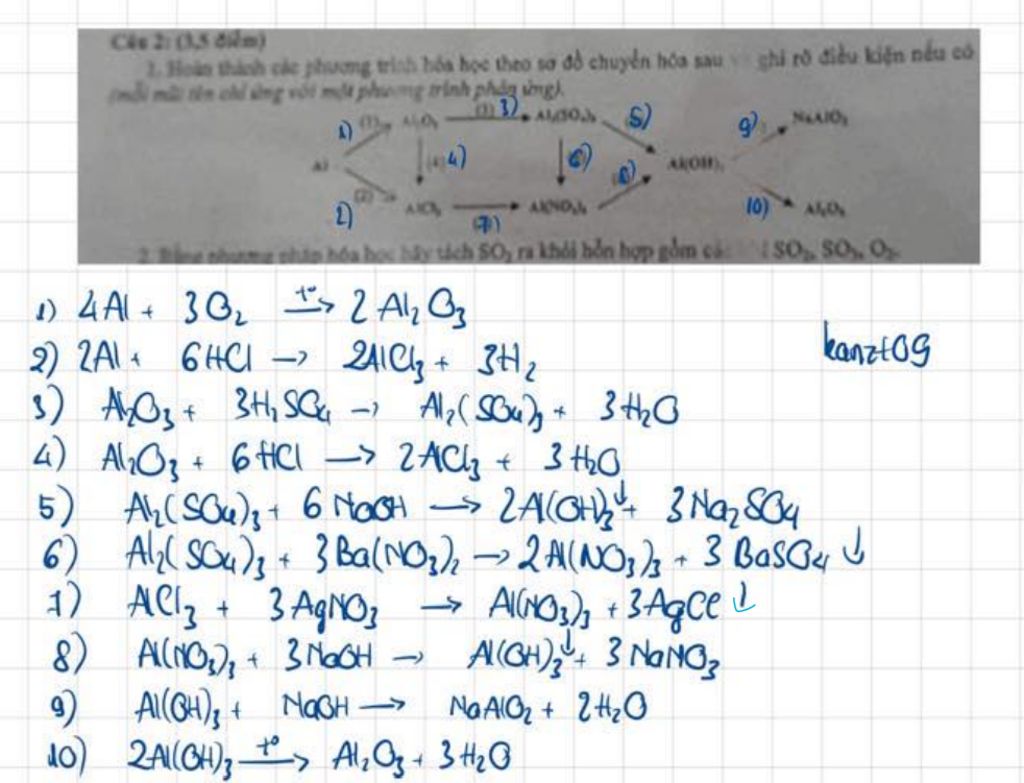 Câu 2: (3,5 điểm)
1. Hoàn thành các phương trình hóa học theo sơ đồ chuyển hóa sau và ghi rõ điều kiện nếu có
(mỗi mũi tên chỉ ứng với một phương trình phản ứng).
1) (1) Al₂O₃ 3) Al₂(SO₄)₃ 5) 9) NaAlO₂
Al (4) 4) 6) 8) Al(OH)₃
2) (2) AlCl₃ (7) Al(NO₃)₃ 10) Al₂O₃
2. Bằng phương pháp hóa học hãy tách SO₂ ra khỏi hỗn hợp gồm các khí SO₂, SO₃, O₂.
1) 4Al + 3O₂ t°→ 2Al₂O₃
2) 2Al + 6HCl → 2AlCl₃ + 3H₂
kanzt09
3) Al₂O₃ + 3H₂SO₄ → Al₂(SO₄)₃ + 3H₂O
4) Al₂O₃ + 6HCl → 2AlCl₃ + 3H₂O
5) Al₂(SO₄)₃ + 6NaOH → 2Al(OH)₃↓ + 3Na₂SO₄
6) Al₂(SO₄)₃ + 3Ba(NO₃)₂ → 2Al(NO₃)₃ + 3BaSO₄↓
7) AlCl₃ + 3AgNO₃ → Al(NO₃)₃ + 3AgCl↓
8) Al(NO₃)₃ + 3NaOH → Al(OH)₃↓ + 3NaNO₃
9) Al(OH)₃ + NaOH → NaAlO₂ + 2H₂O
10) 2Al(OH)₃ t°→ Al₂O₃ + 3H₂O